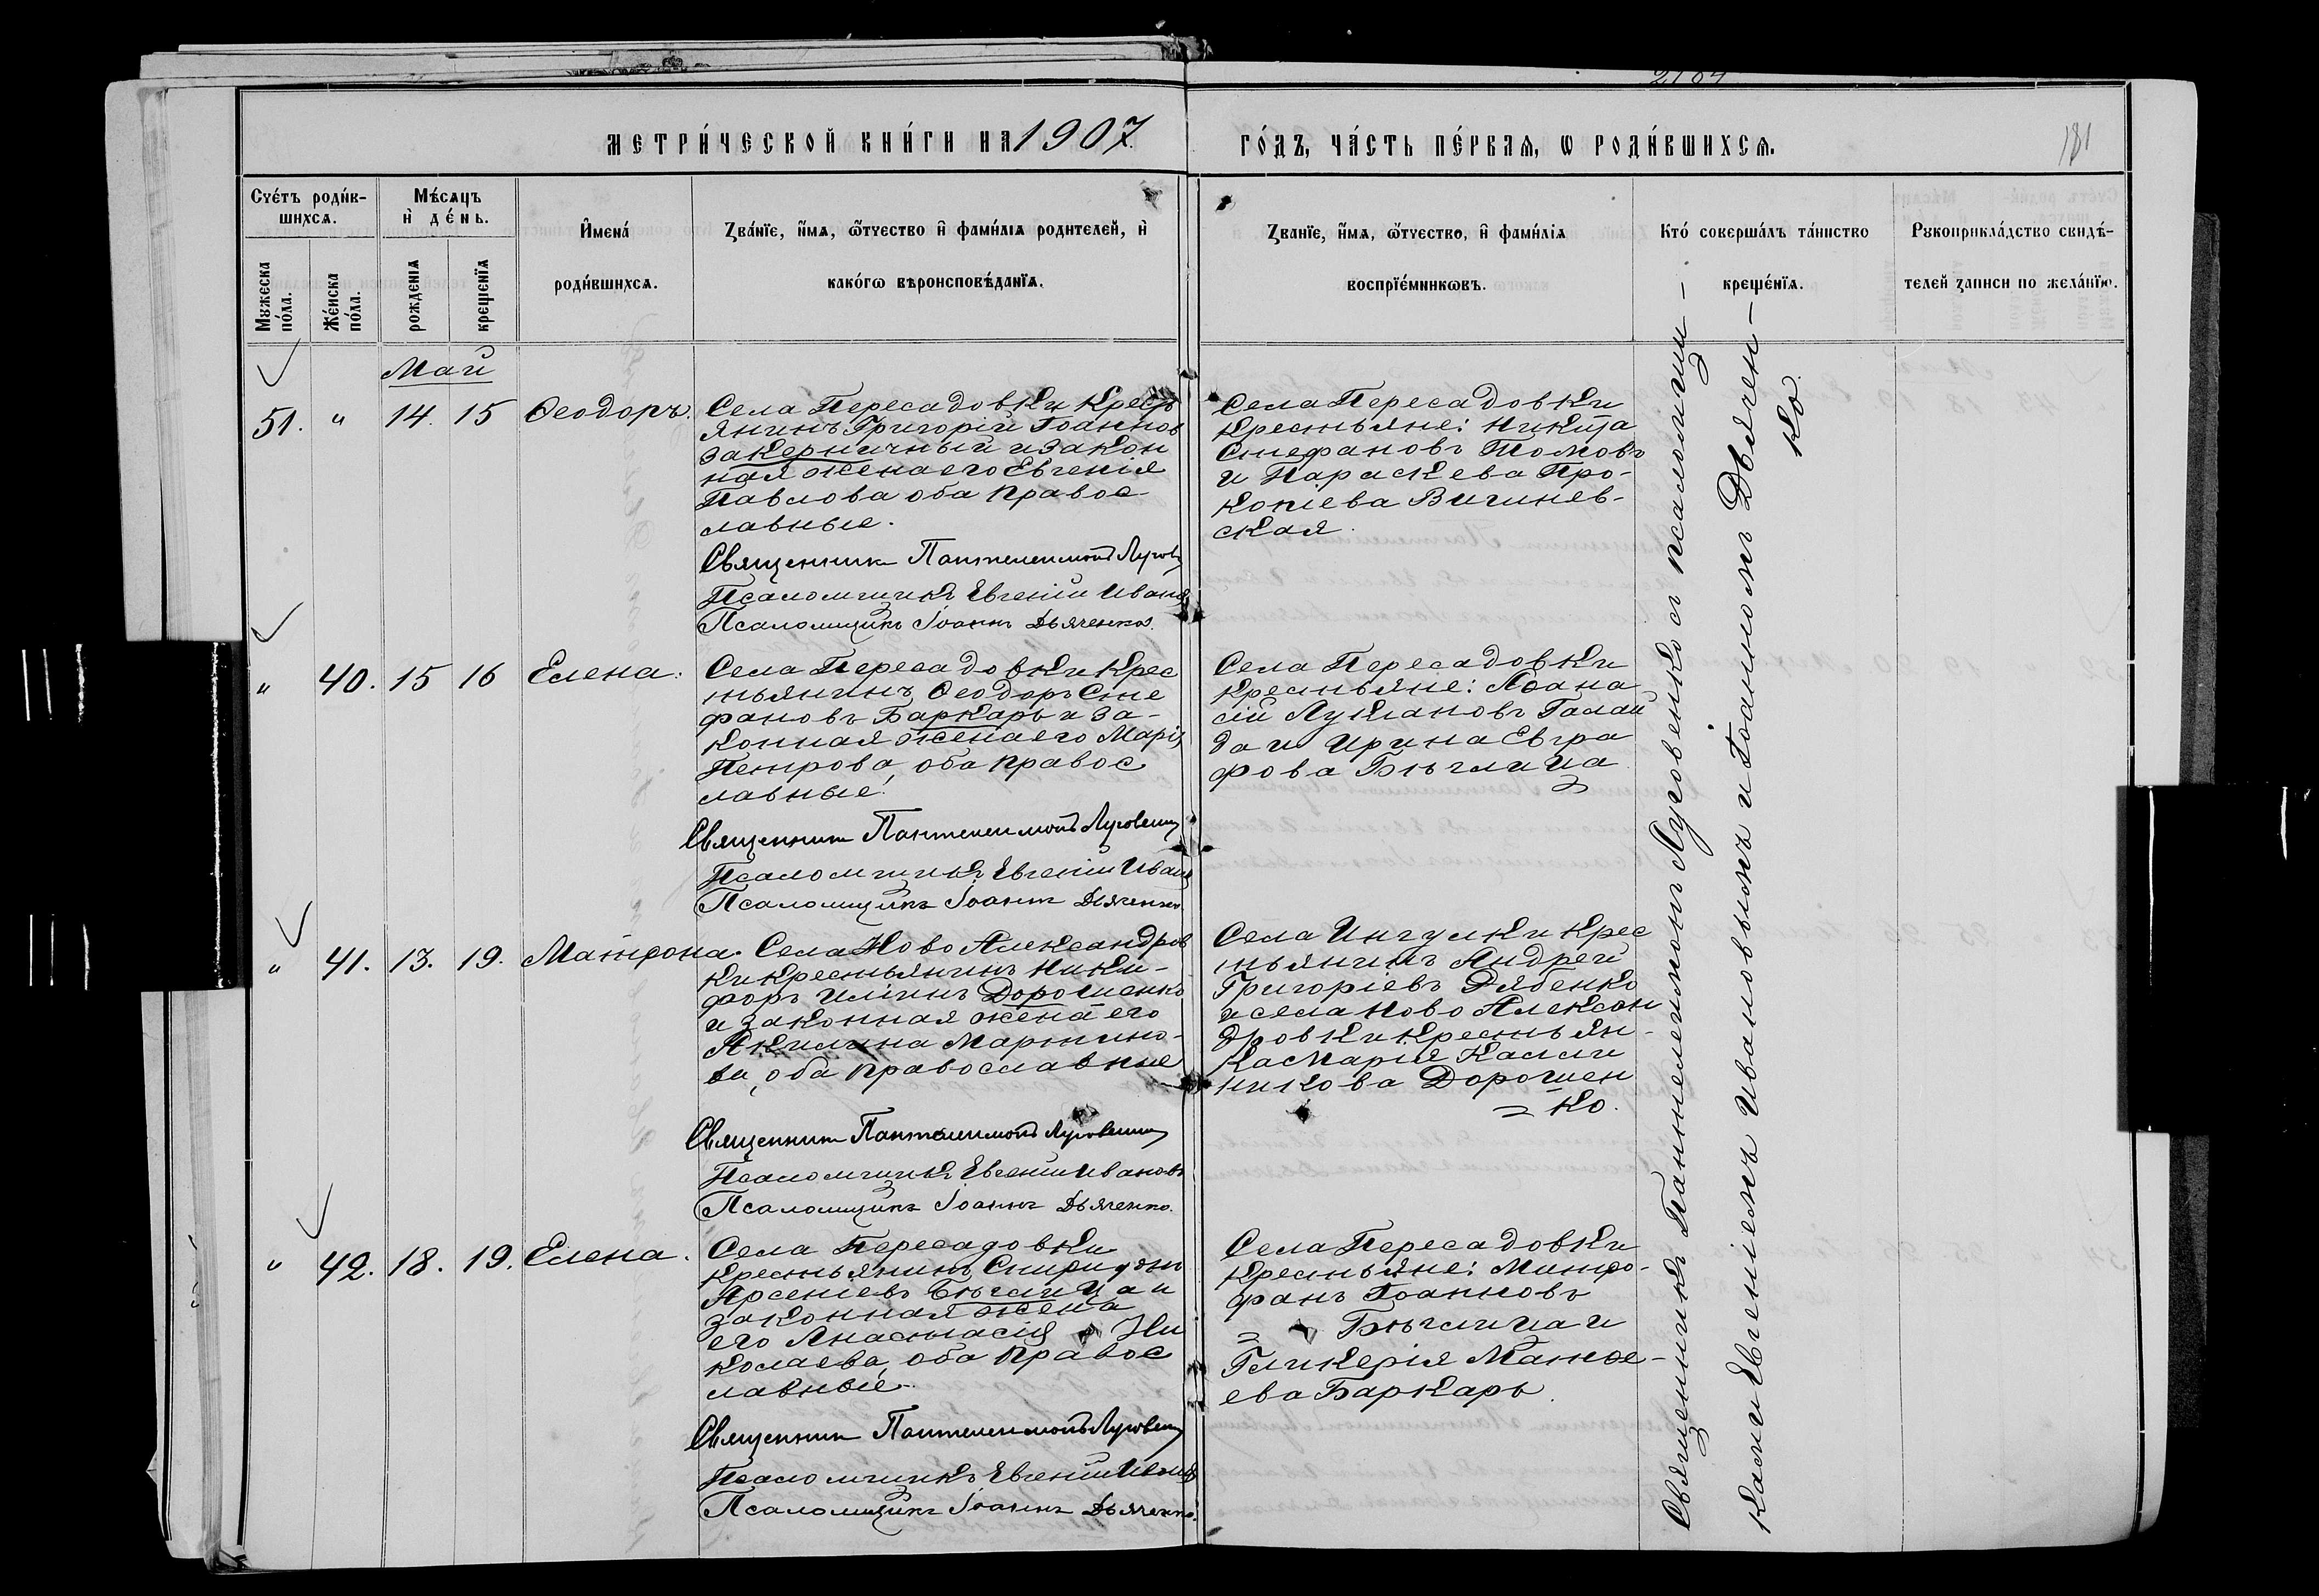 2184
181
МЕТРИ́ЧЕСКОЙ КНИ́ГИ НА 1907
ГО́ДЪ, ЧА́СТЬ ПЕ́РВАѦ, Ѡ РОДИ́ВШИХСѦ.
Сче́тъ роди́в-
шихсѧ.
Мꙋжеска
по́ла.
Же́нска
по́ла.
Мѣ́сѧцъ
и҆ де́нь.
рожденїѧ
крещенїѧ
И҆мена́
роди́вшихсѧ.
Зва́нїе, и҆́мѧ, ѻ҆́тчество и҆ фами́лїѧ родителей, и҆
како́гѡ вѣроисповѣ́данїѧ.
Званїе, и҆́мѧ, ѻ҆́тчество, и҆ фами́лїѧ
воспрїе́мникѡвъ.
Кто́ соверша́лъ та́инство
креще́нїѧ.
Рꙋкоприкла́дство свидѣ́-
телей записи по жела́нїю.
Май
51. " 14. 15 Ѳеодоръ.
Села Пересадовки крест
янинъ Григорій Іоаннов
Закерничный и закон
ная жена его Евгенія
Павлова оба правос-
лавные.
Священник Пантелеимонъ Лугов
Псаломщикъ Евгеній Иванов
Псаломщикъ Іоаннъ Дьяченко.
Села Пересадовки
крестьяне: Никита
Стефановъ Томовъ
и Параскева Про-
копіева Вишнев-
ская.
" 40. 15 16 Елена.
Села Пересадовки крес
тьянинъ Ѳеодоръ Сте
фановъ Баркарь и за-
конная жена его Марія
Петрова, оба правос
лавные.
Священник Пантелеимонъ Луговенко
Псаломщикъ Евгеній Иван
Псаломщикъ Іоаннъ Дьяченко.
Села Пересадовки
крестьяне: Аѳана
сій Лукіановъ Галай
да и Ирина Евгра
фова Бѣглица
" 41. 13. 19. Матрона.
Села Ново Александров
ки крестьянинъ Ники-
форъ Иліинъ Дорошенко
и законная жена его
Акилина Мартино-
ва, оба православные
Священник Пантелеимонъ Луговенко
Псаломщикъ Евгеній Ивановъ
Псаломщикъ Іоаннъ Дьяченко.
Села Ингулки крес
тьянинъ Андрей
Григоріевъ Дябенко
и села Ново Алексан
дровки крестьян-
ка Марія Калли
никова Дорошен
= ко.
" 42. 18. 19. Елена.
Села Пересадовки
крестьянинъ Спиридонъ
Арсеніевъ Бѣглица и
законная жена
его Анастасія Ни
колаева, оба правос
лавные.
Священник Пантелеимонъ Луговенко
Псаломщикъ Евгеній Иванов
Псаломщикъ Іоаннъ Дьяченко.
Села Пересадовки
крестьяне: Митро-
фанъ Іоанновъ
= Бѣглица и
Гликерія Матѳе-
ева Баркарь.
Священникъ Пантелеимонъ Луговенко съ псаломщи-
ками Евгеніемъ Ивановымъ и Іоанномъ Дьячен-
ко.